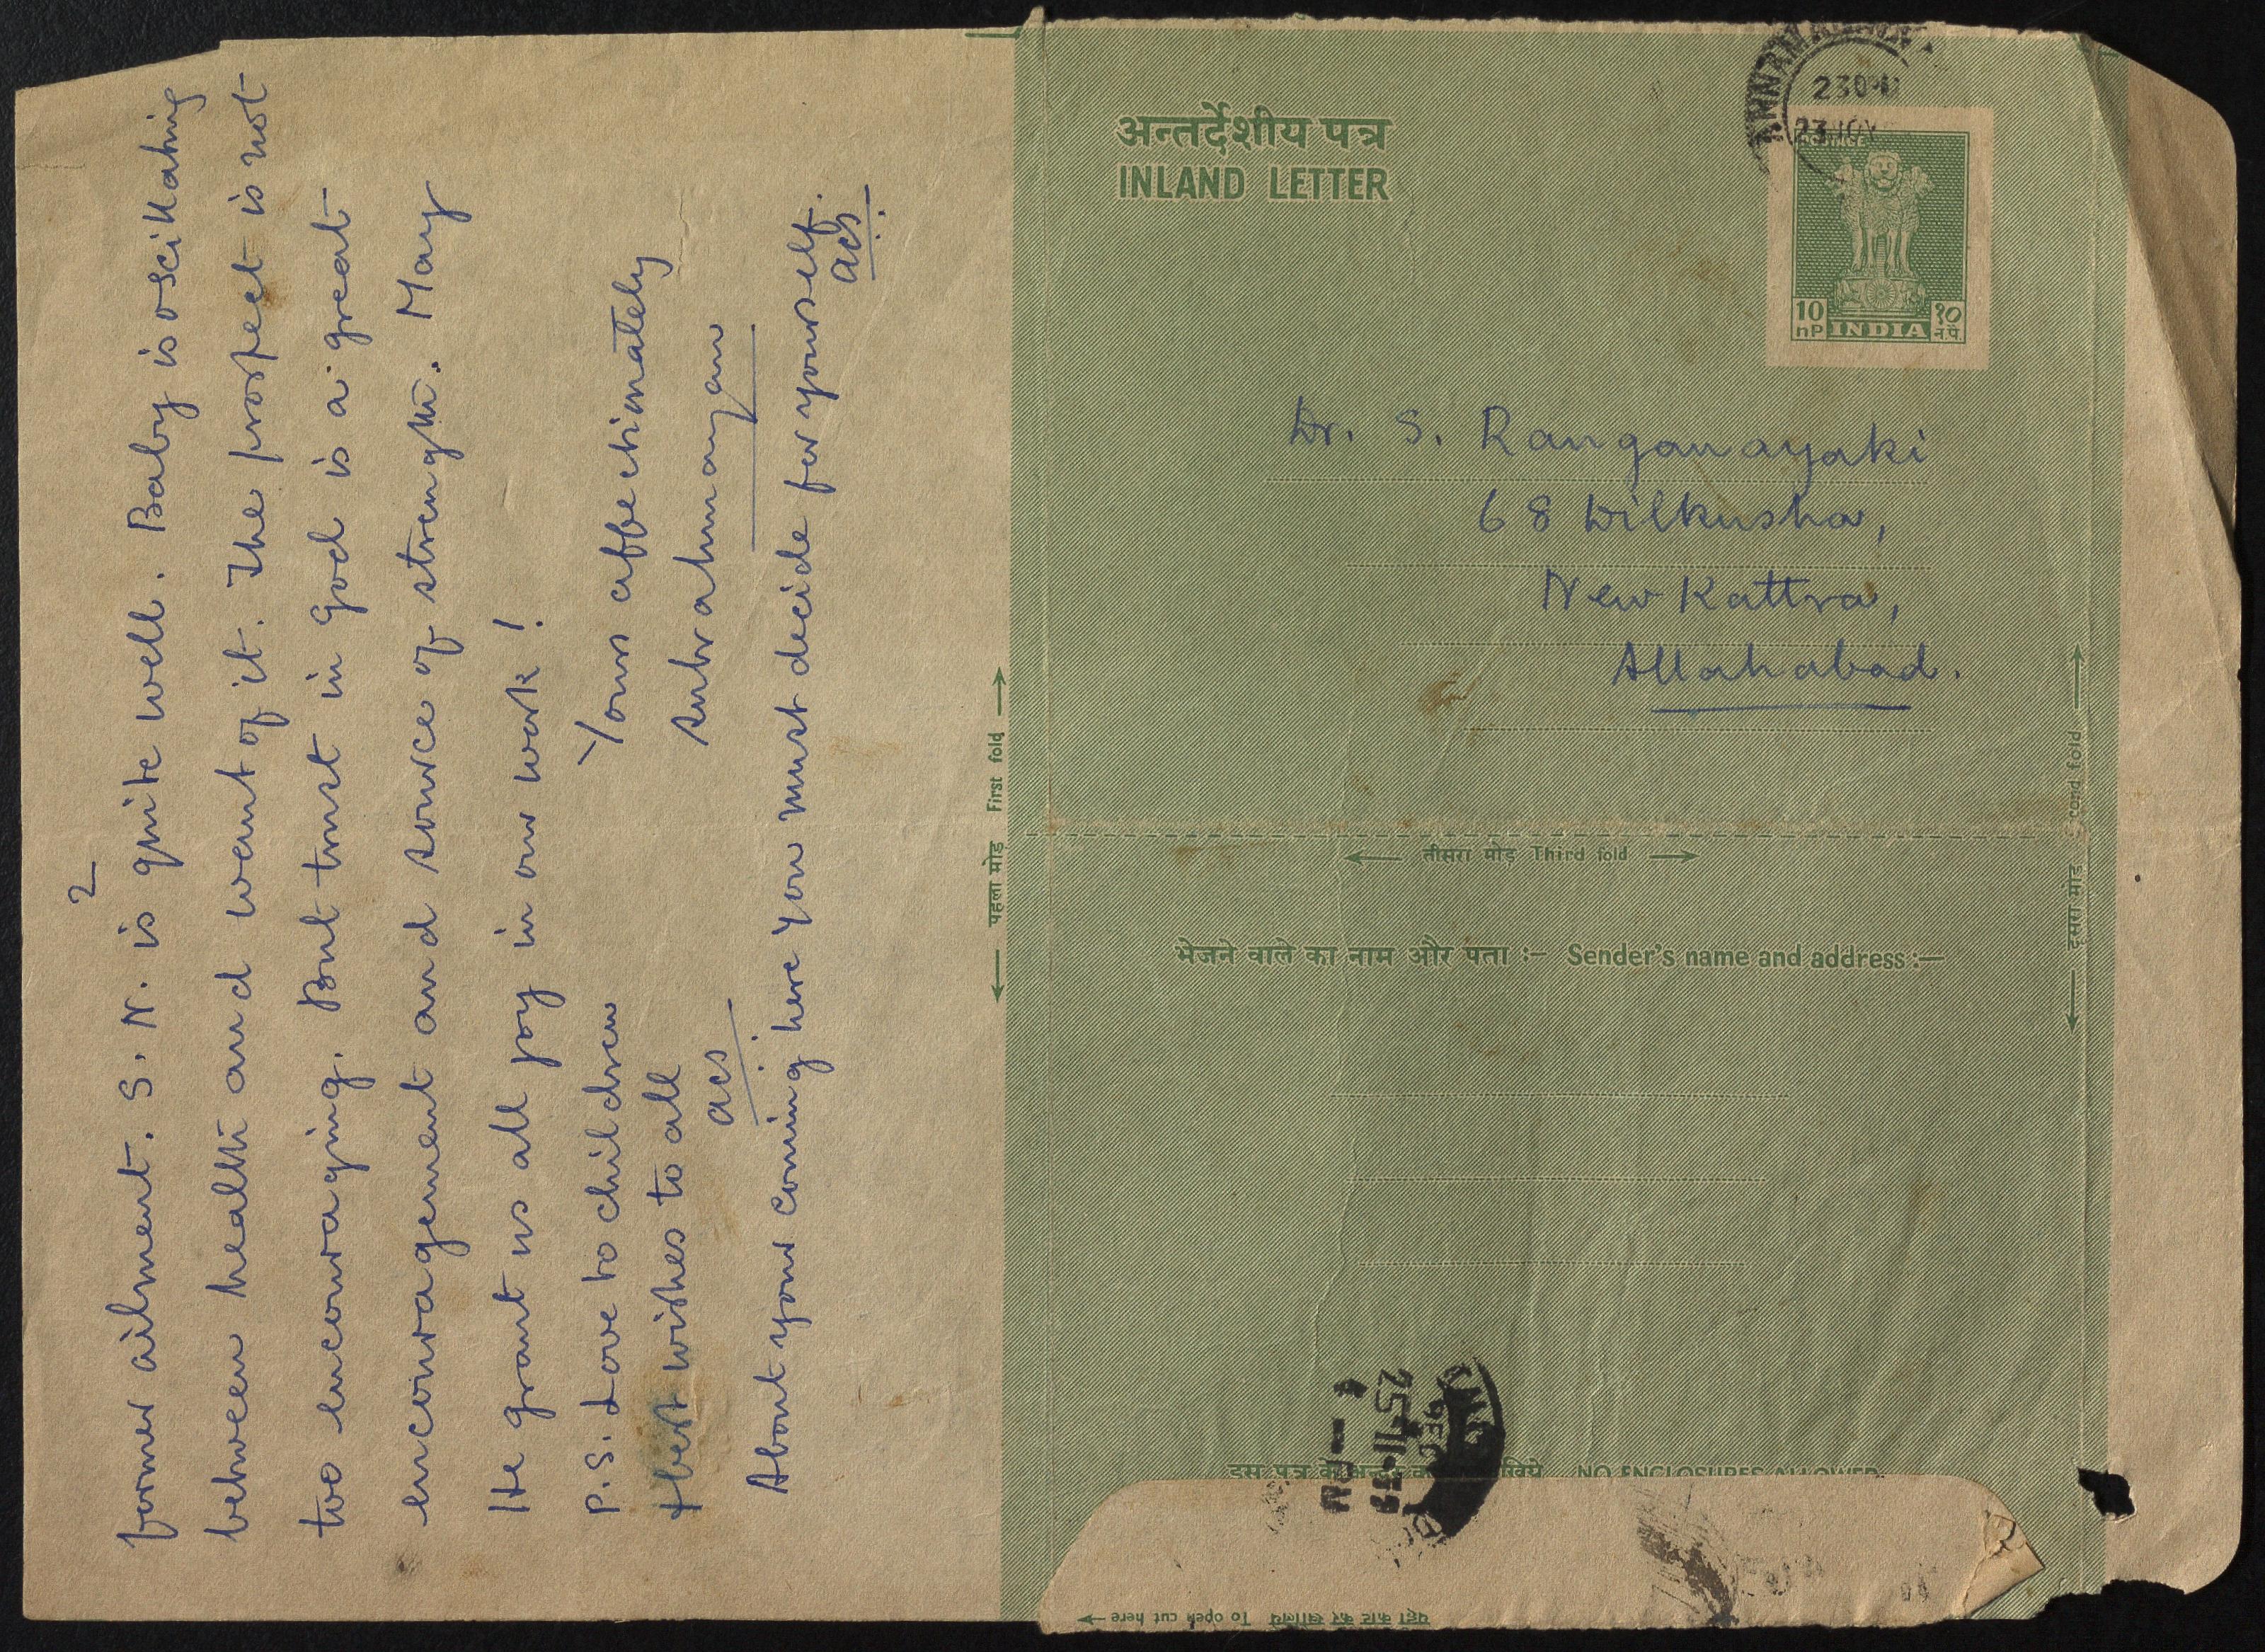 2
former ailment. S. N. is quite well. Baby is oscillating
between health and want of it. The prospect is not
too encouraging. But trust in God is a great
encouragement and source of strength. May
He grant us all joy in our work!
Yours affectionately
Subrahmanyam
P.S. Love to children
+ best wishes to all
acs.
About your coming here you must decide for yourself.
acs.
पहला मोड़ First fold
अन्तर्देशीय पत्र
INLAND LETTER
23 NOV
10 nP INDIA १० न.पै.
Dr. S. Ranganayaki
68 Dilkusha,
New Kattra,
Allahabad.
तीसरा मोड़ Third fold
दूसरा मोड़ Second fold
भेजने वाले का नाम और पता :— Sender's name and address :—
25
NO ENCLOSURES ALLOWED
To open cut here